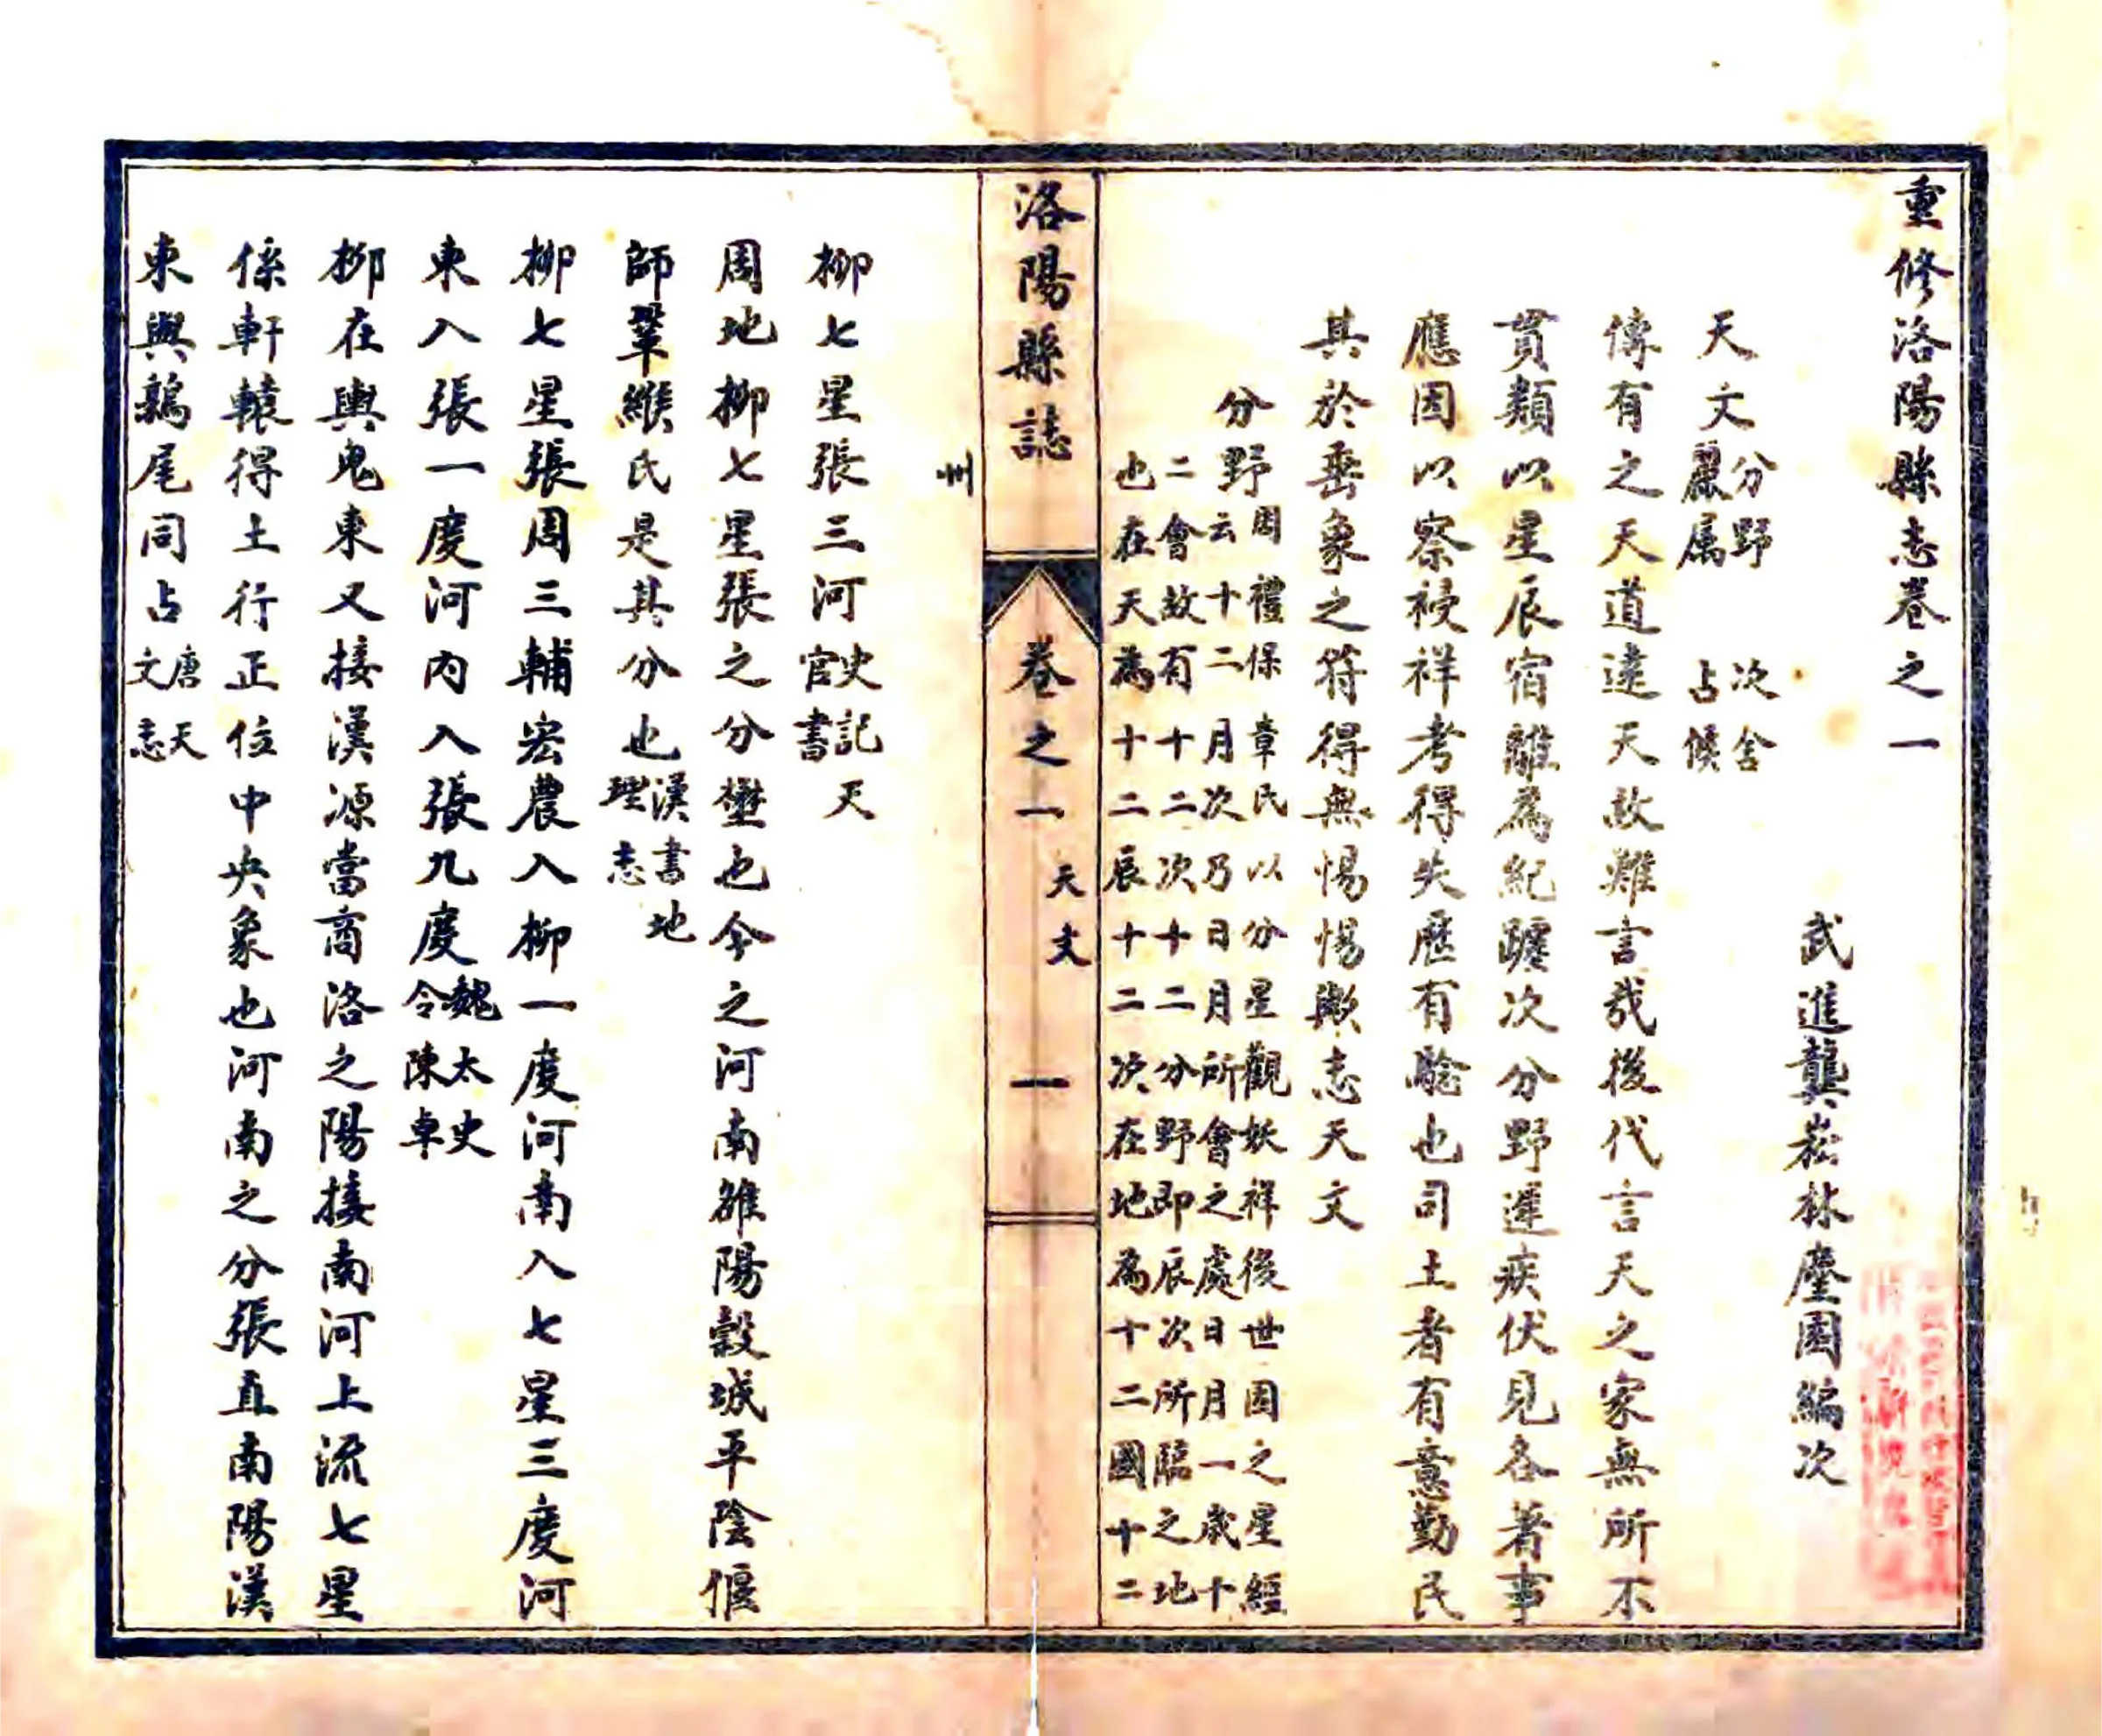 重修洛陽縣志卷之一
武進龔崧林麈園編次
天文分野　次舍
麗屬　占候
傳有之天道遠天故難言哉後代言天之家無所不
貫類以星辰宿離為紀躔次分野遲疾伏見各著事
應因以察祲祥考得失歷有驗也司土者有意勤民
其於垂象之符得無惕惕歟志天文
分野周禮保章氏以分星觀妖祥後世因之星經
云十二月次乃日月所會之處日月一歲十
二會故有十二次十二分野即辰次所臨之地
也在天為十二辰十二次在地為十二國十二
州
洛陽縣誌　卷之一　天文　一
柳七星張三河史記天
官書
周地柳七星張之分壄也今之河南雒陽穀城平陰偃
師鞏緱氏是其分也漢書地
理志
柳七星張周三輔宏農入柳一度河南入七星三度河
東入張一度河內入張九度魏太史
令陳卓
柳在輿鬼東又接漢源當商洛之陽接南河上流七星
係軒轅得土行正位中央象也河南之分張直南陽漢
東與鶉尾同占唐天
文志